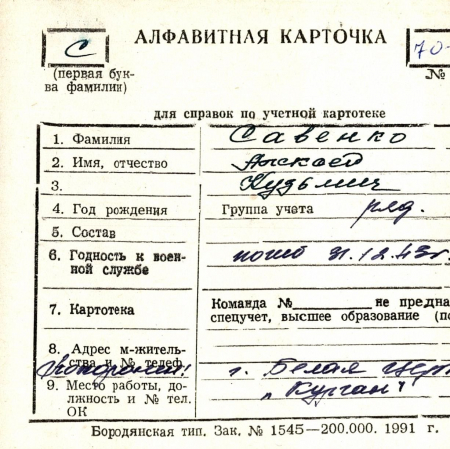 С АЛФАВИТНАЯ КАРТОЧКА 70-
(первая бук-
ва фамилии) №
для справок по учетной картотеке
1. Фамилия Савенко
2. Имя, отчество Алексей
3. Кузьмич
4. Год рождения Группа учета ряд.
5. Состав
6. Годность к воен-
ной службе погиб 31.12.43г
7. Картотека Команда № не предна
спецучет, высшее образование (по
8. Адрес м-житель-
ства и № телеф. г. Белая Церк
9. Место работы, до- "Курган"
лжность и № тел.
ОК
Бородянская тип. Зак. № 1545—200.000. 1991 г.